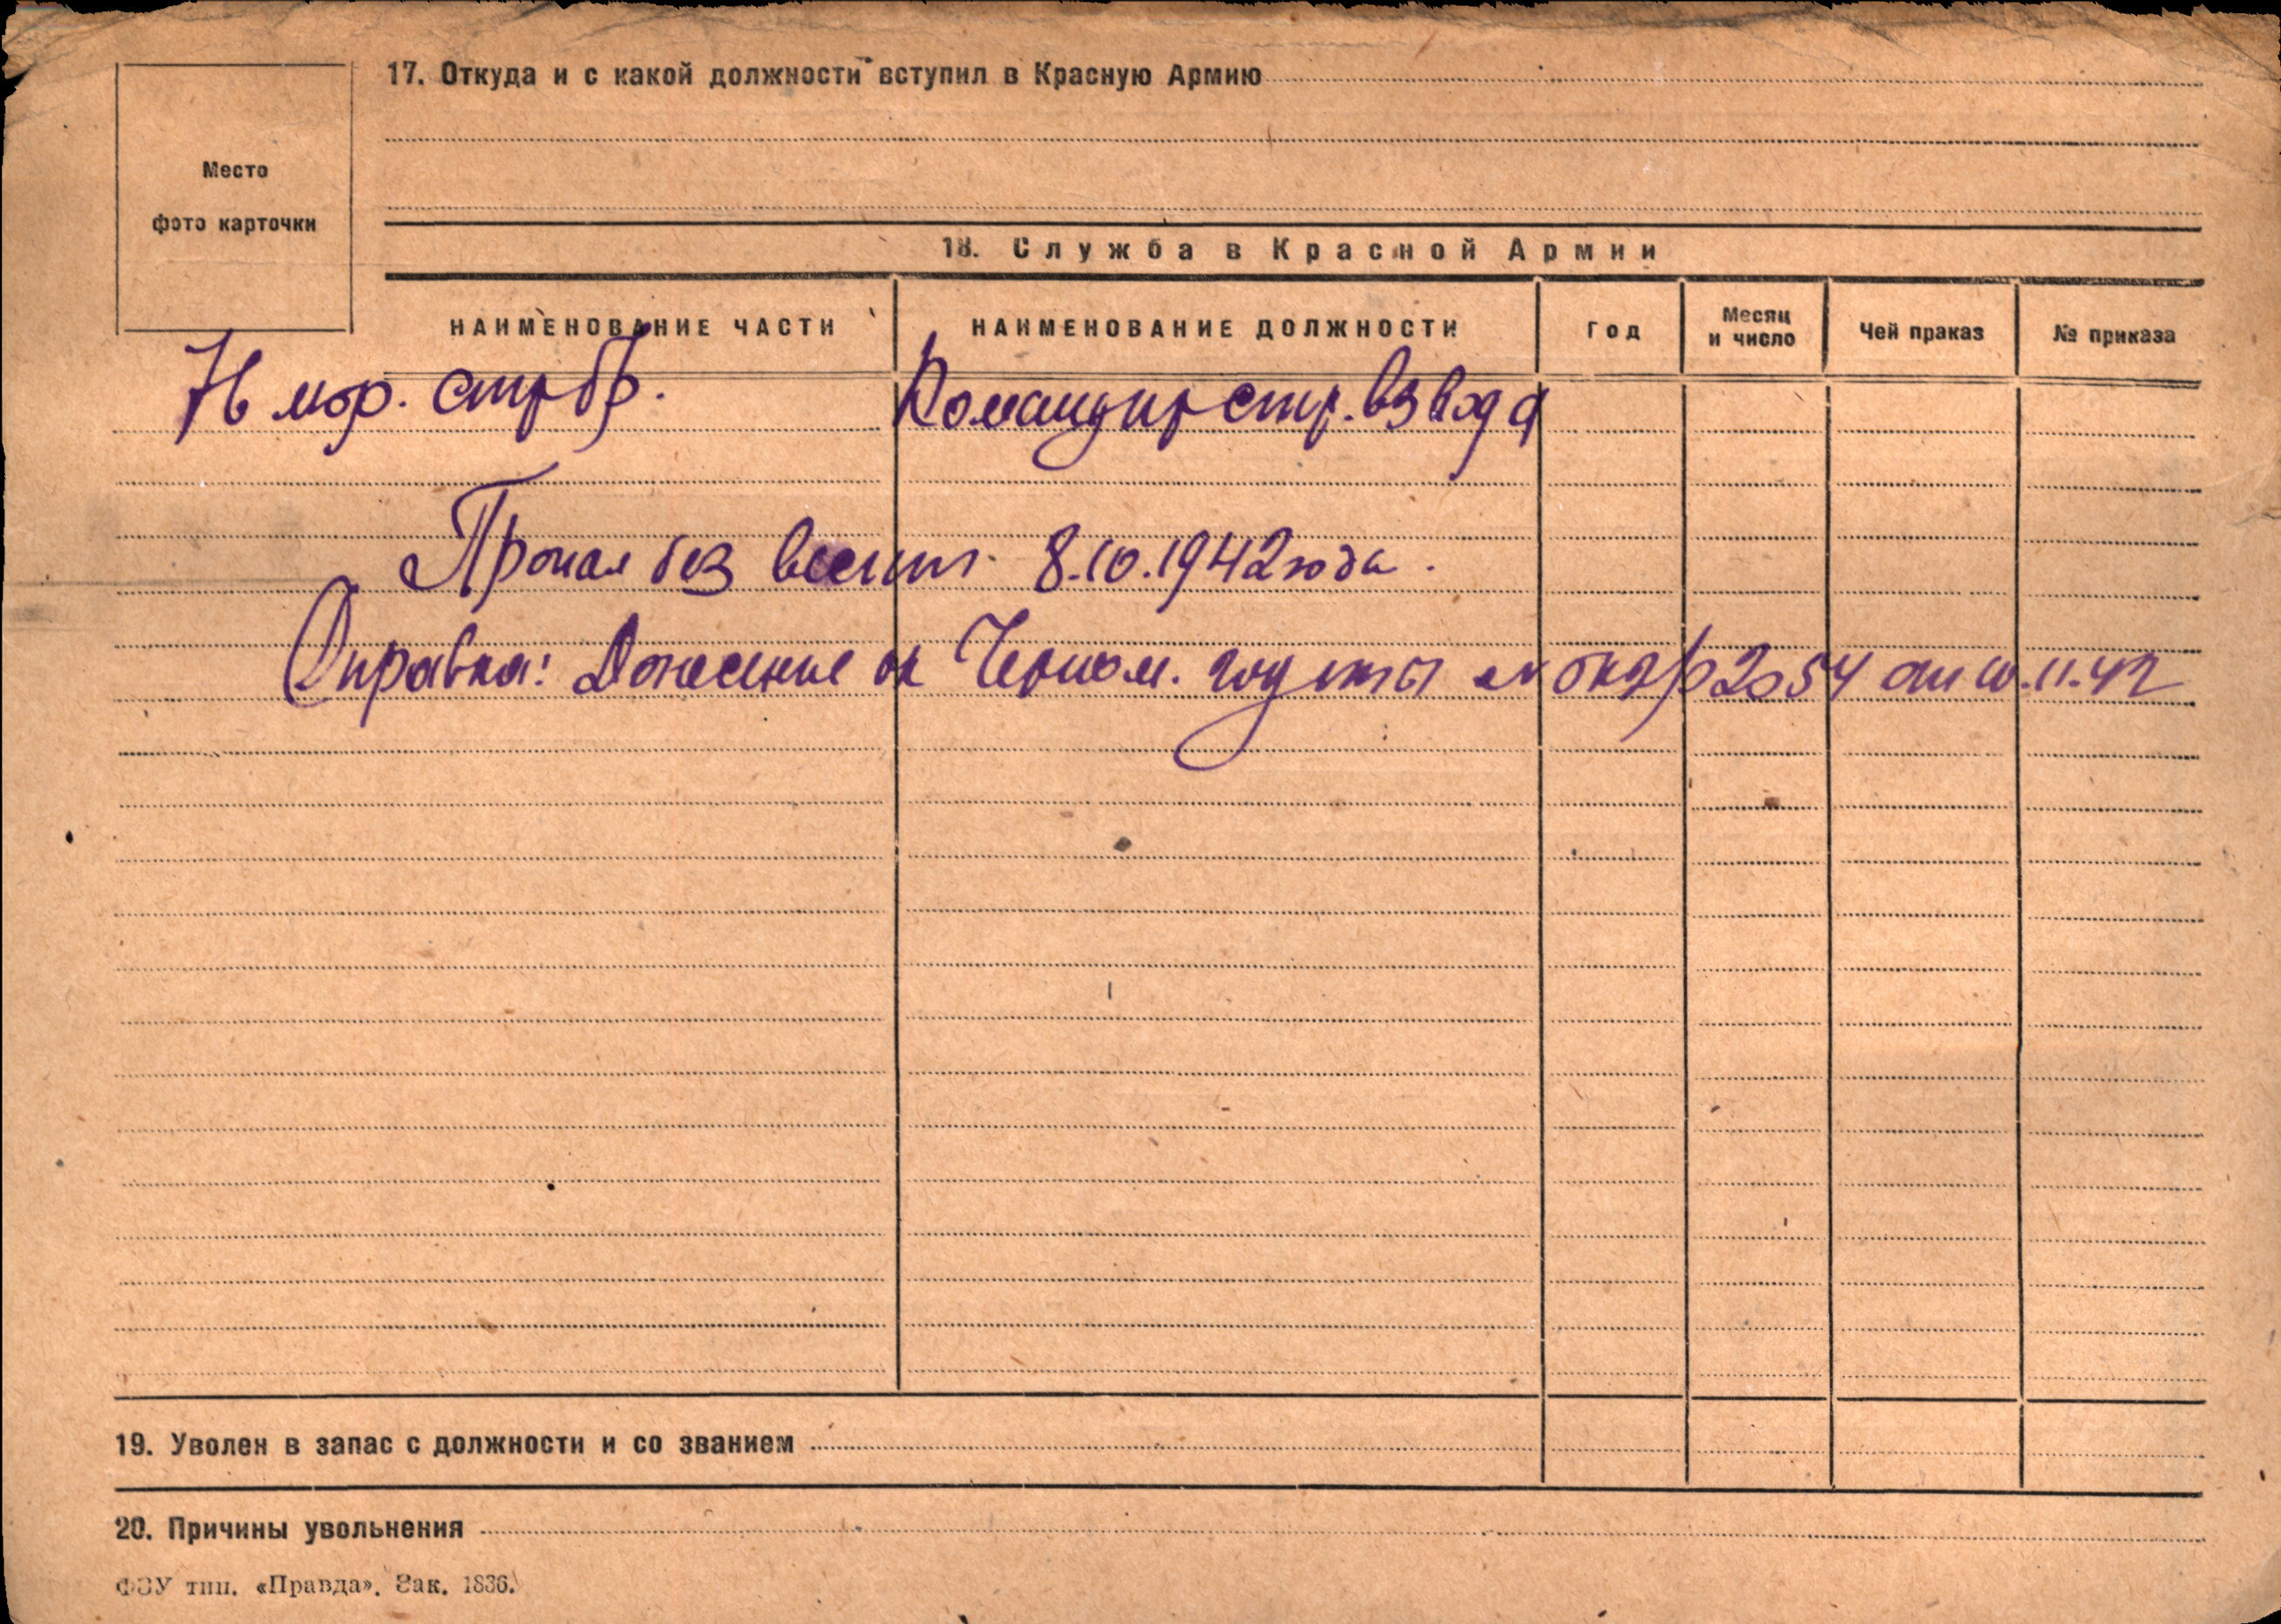 17. Откуда и с какой должности вступил в Красную Армию
Место
фото карточки
18. Служба в Красной Армии
НАИМЕНОВАНИЕ ЧАСТИ НАИМЕНОВАНИЕ ДОЛЖНОСТИ Год Месяц и число Чей праказ № приказа
76 мор. стр бр. Командир стр. взвода
Пропал без вести 8.10.1942 года.
Справка: Донесение Черном. группы 2054 от 10.11.42
19. Уволен в запас с должности и со званием
20. Причины увольнения
ФЗУ тип. «Правда». Зак. 1836.